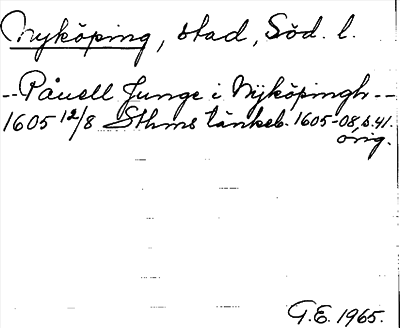 Nyköping, stad, Söd. l.
-- Påuell Junge i Nÿköpingh --
1605 12/8 Sthms tänkeb. 1605-08, s. 41.
orig.
G.E. 1965.